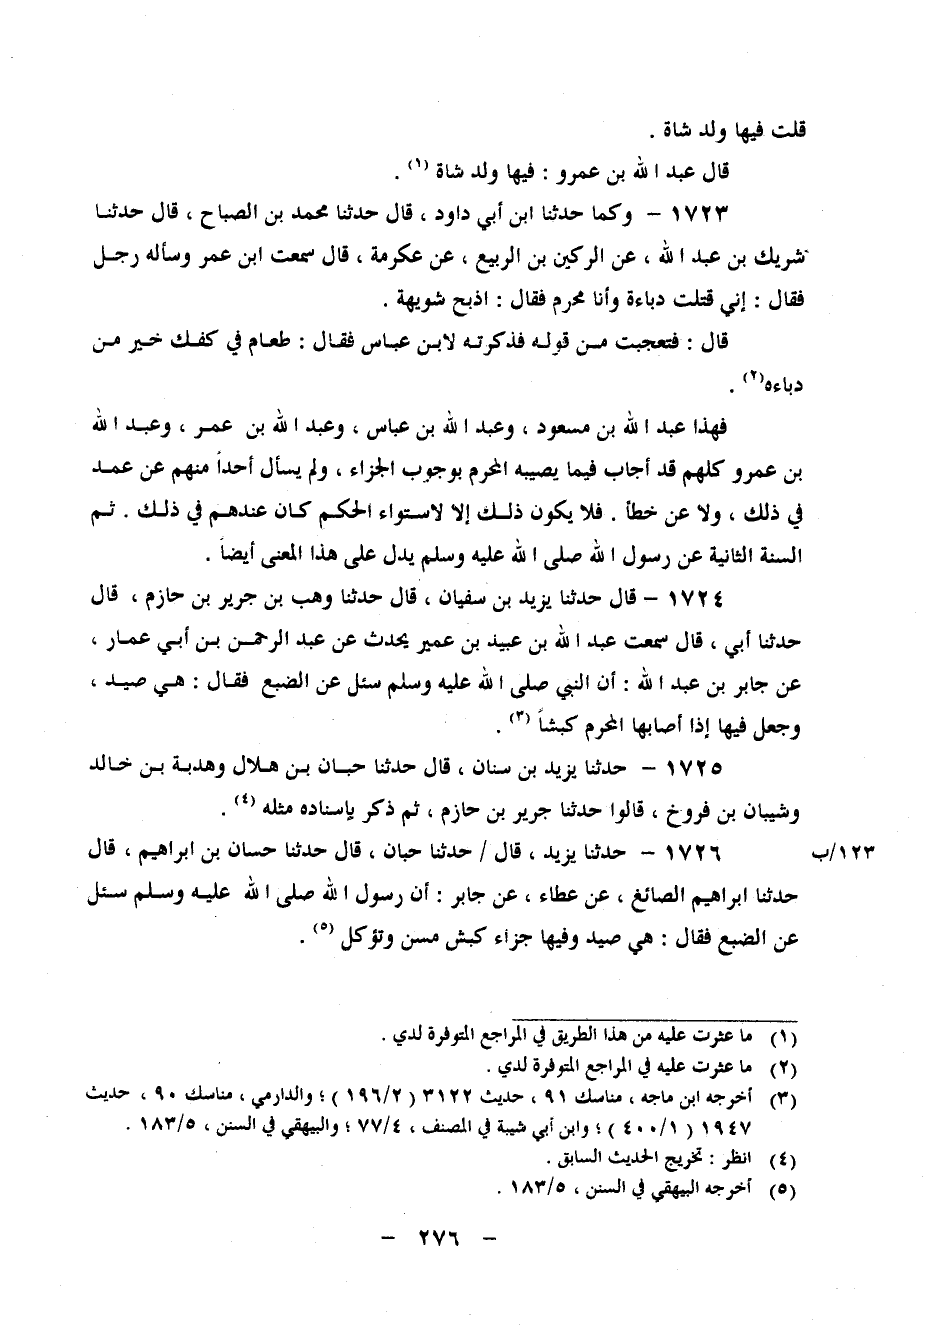 قلت فيها ولد شاة .
قال عبد الله بن عمرو : فيها ولد شاة (١) .
١٧٢٣ - وكما حدثنا ابن أبي داود ، قال حدثنا محمد بن الصباح ، قال حدثنا
شريك بن عبد الله ، عن الركين بن الربيع ، عن عكرمة ، قال سمعت ابن عمر وسأله رجل
فقال : إني قتلت دباءة وأنا محرم فقال : اذبح شويهة .
قال : فتعجبت من قوله فذكرته لابن عباس فقال : طعام في كفك خير من
دباءه(٢) .
فهذا عبد الله بن مسعود ، وعبد الله بن عباس ، وعبد الله بن عمر ، وعبد الله
بن عمرو كلهم قد أجاب فيما يصيبه المحرم بوجوب الجزاء ، ولم يسأل أحداً منهم عن عمد
في ذلك ، ولا عن خطأ . فلا يكون ذلك إلا لاستواء الحكم كان عندهم في ذلك . ثم
السنة الثانية عن رسول الله صلى الله عليه وسلم يدل على هذا المعنى أيضاً .
١٧٢٤ - قال حدثنا يزيد بن سفيان ، قال حدثنا وهب بن جرير بن حازم ، قال
حدثنا أبي ، قال سمعت عبد الله بن عبيد بن عمير يحدث عن عبد الرحمن بن أبي عمار ،
عن جابر بن عبد الله : أن النبي صلى الله عليه وسلم سئل عن الضبع فقال : هي صيد ،
وجعل فيها إذا أصابها المحرم كبشاً (٣) .
١٧٢٥ - حدثنا يزيد بن سنان ، قال حدثنا حبان بن هلال وهدبة بن خالد
وشيبان بن فروخ ، قالوا حدثنا جرير بن حازم ، ثم ذكر بإسناده مثله (٤) .
١٢٣/ب ١٧٢٦ - حدثنا يزيد ، قال / حدثنا حبان ، قال حدثنا حسان بن ابراهيم ، قال
حدثنا ابراهيم الصائغ ، عن عطاء ، عن جابر : أن رسول الله صلى الله عليه وسلم سئل
عن الضبع فقال : هي صيد وفيها جزاء كبش مسن وتؤكل (٥) .
(١) ما عثرت عليه من هذا الطريق في المراجع المتوفرة لدي .
(٢) ما عثرت عليه في المراجع المتوفرة لدي .
(٣) أخرجه ابن ماجه ، مناسك ٩١ ، حديث ٣١٢٢ ( ١٩٦/٢ ) ؛ والدارمي ، مناسك ٩٠ ، حديث
١٩٤٧ ( ٤٠٠/١ ) ؛ وابن أبي شيبة في المصنف ، ٧٧/٤ ؛ والبيهقي في السنن ، ١٨٣/٥ .
(٤) انظر : تخريج الحديث السابق .
(٥) أخرجه البيهقي في السنن ، ١٨٣/٥ .
- ٢٧٦ -